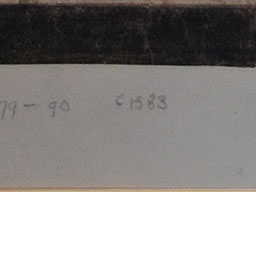 79-90 C1583